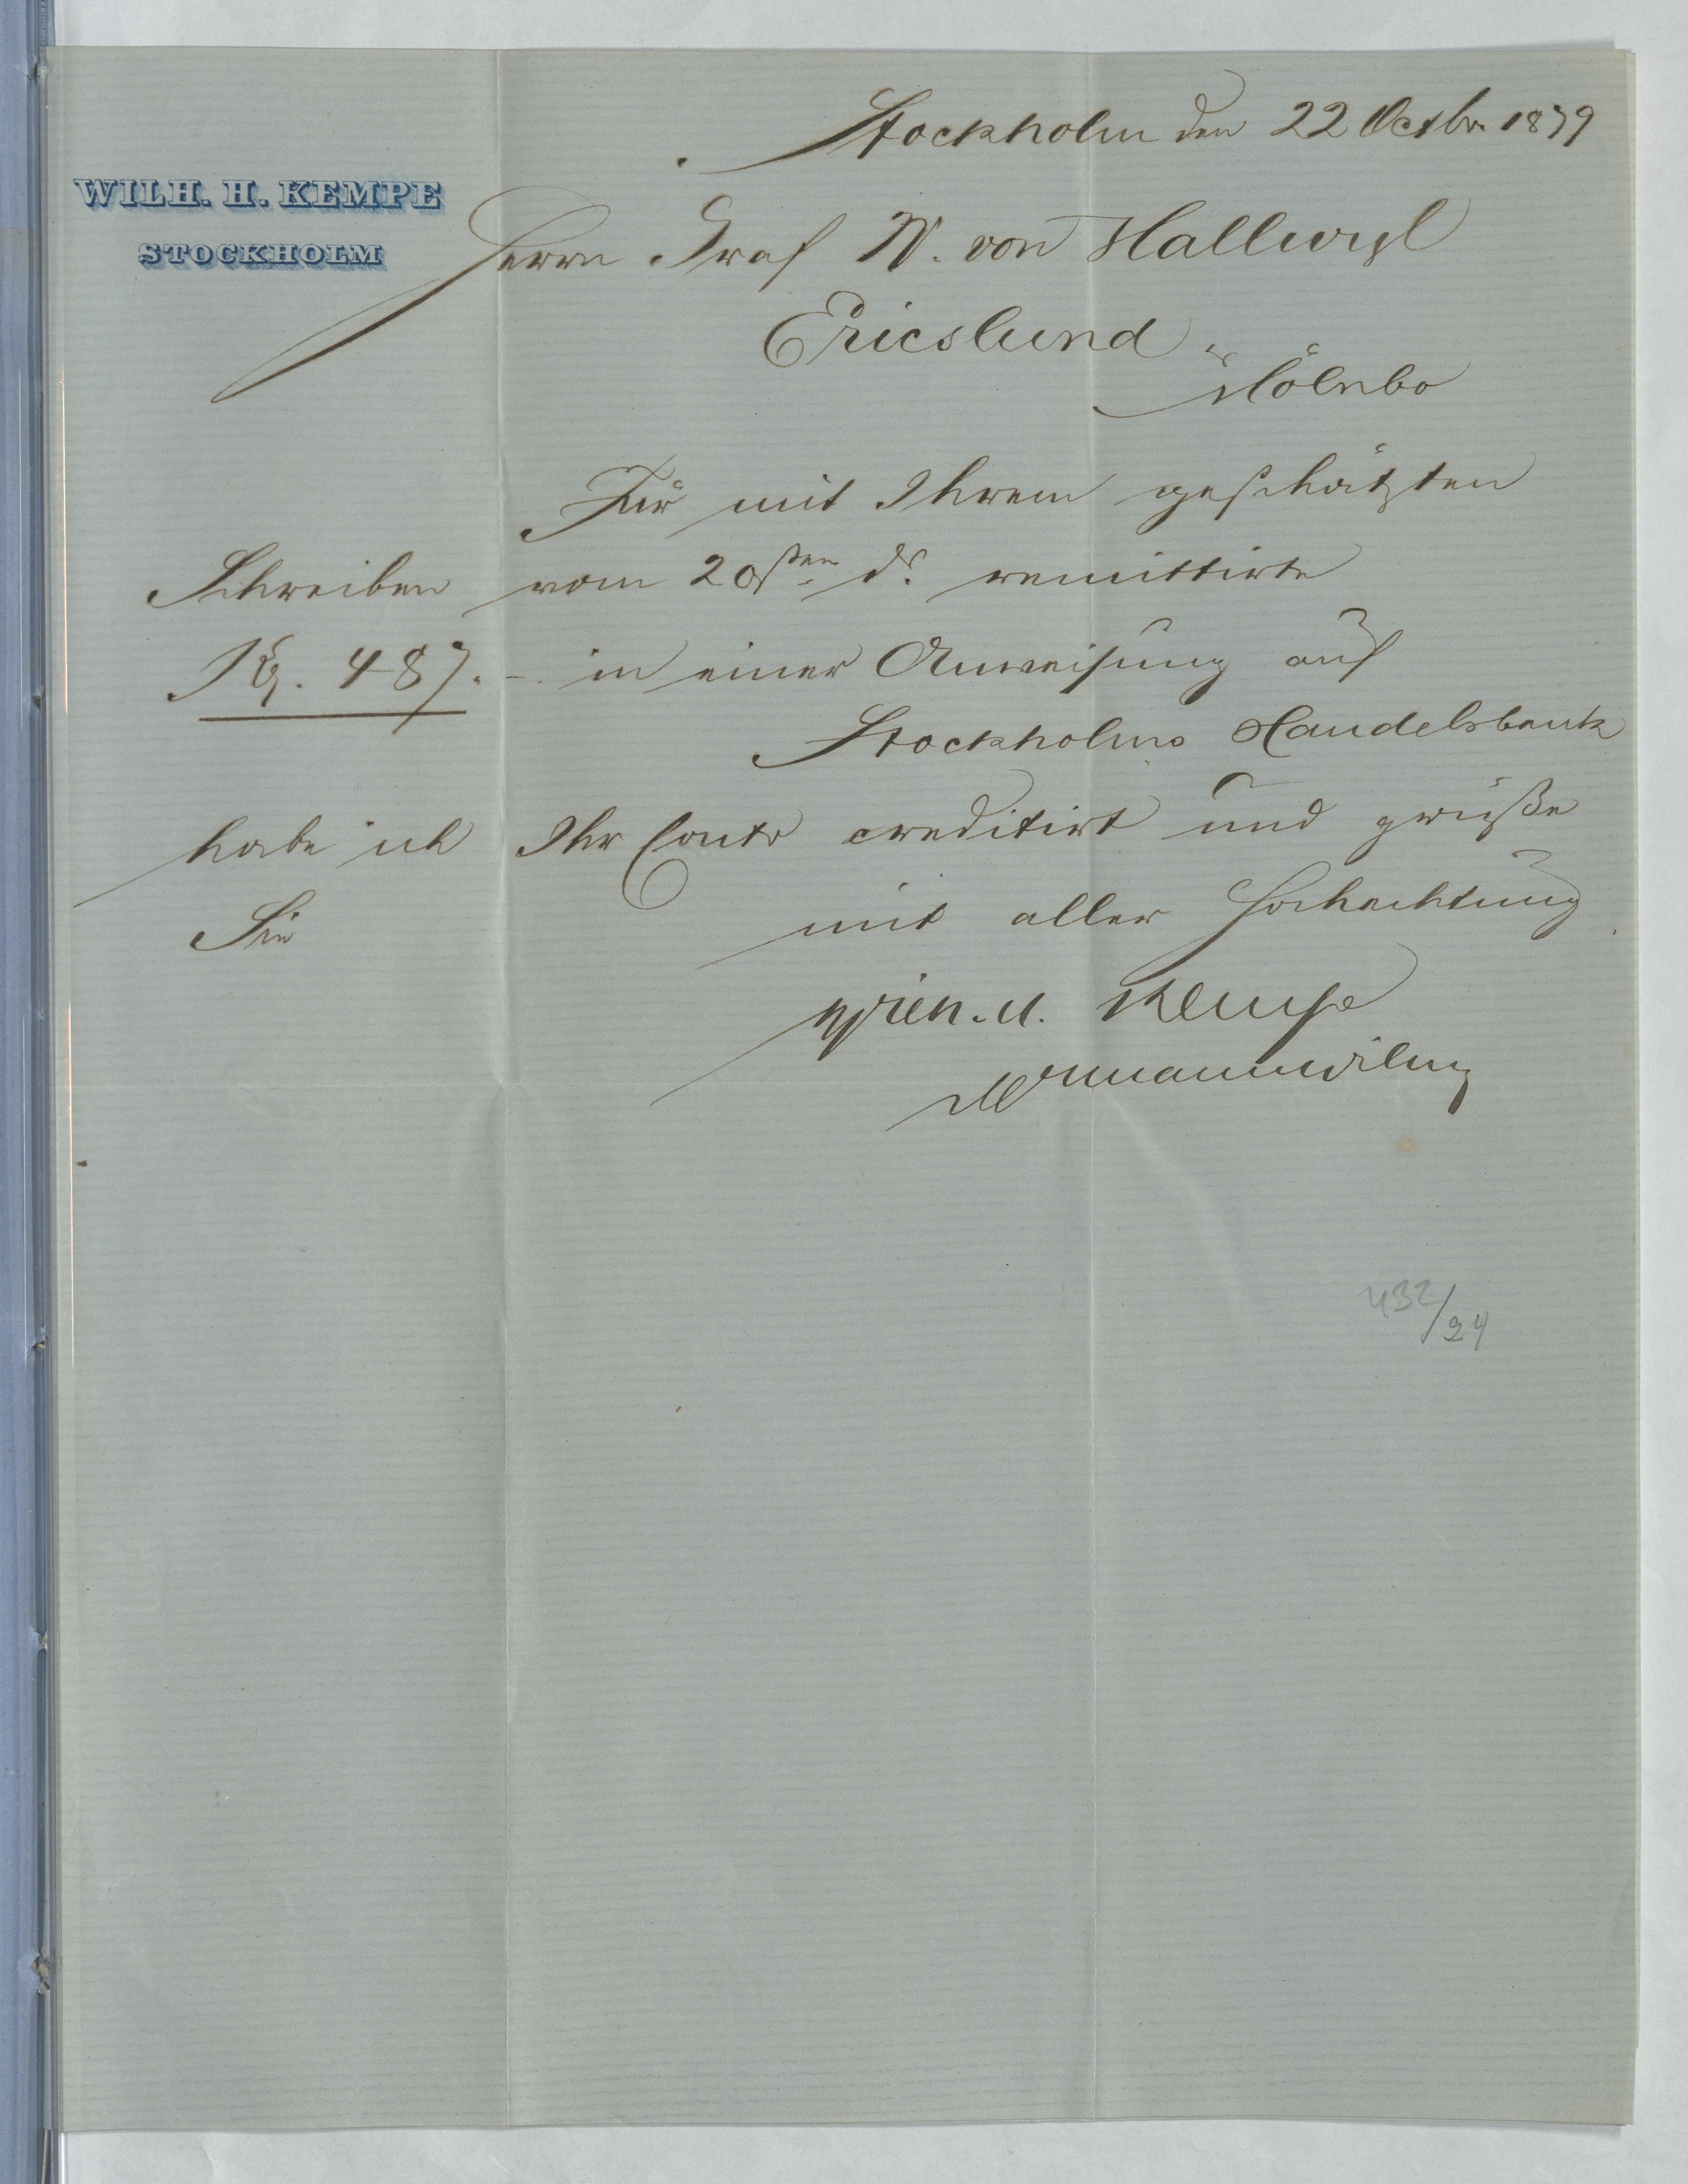 Stockholm den 22 Octbr. 1879
WILH. H. KEMPE
STOCKHOLM
Herrn Graf W. von Hallwyl
Ericslund
Mölnbo
Für mit Ihrem geschätzten
Schreiben vom 20sten ds. remittirte
Kr. 487.-. in einer Anweisung auf
Stockholms Handelsbank
habe ich Ihr Conto creditirt und grüße
Sie mit aller Hochachtung
Wilh. H. Kempe
432/24